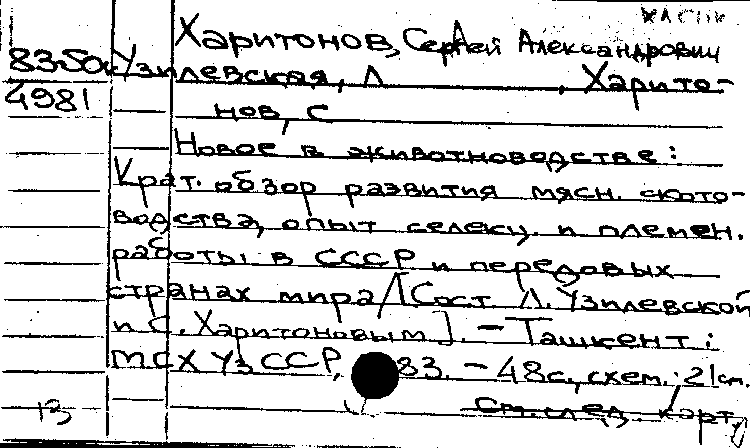 Харитонов, Сергей Александрович
83-50
Узилевская, Л , Харито-
4981
нов, С
Новое в животноводстве:
Крат. обзор развития мясн. ското-
водства, опыт селекц. и племен.
работы в СССР и передовых
странах мира/[Сост Л. Узилевской
и С. Харитоновым]. - Ташкент:
МСХ УзССР, 83. - 48с., схем.; 21см.
См. след. карту
13